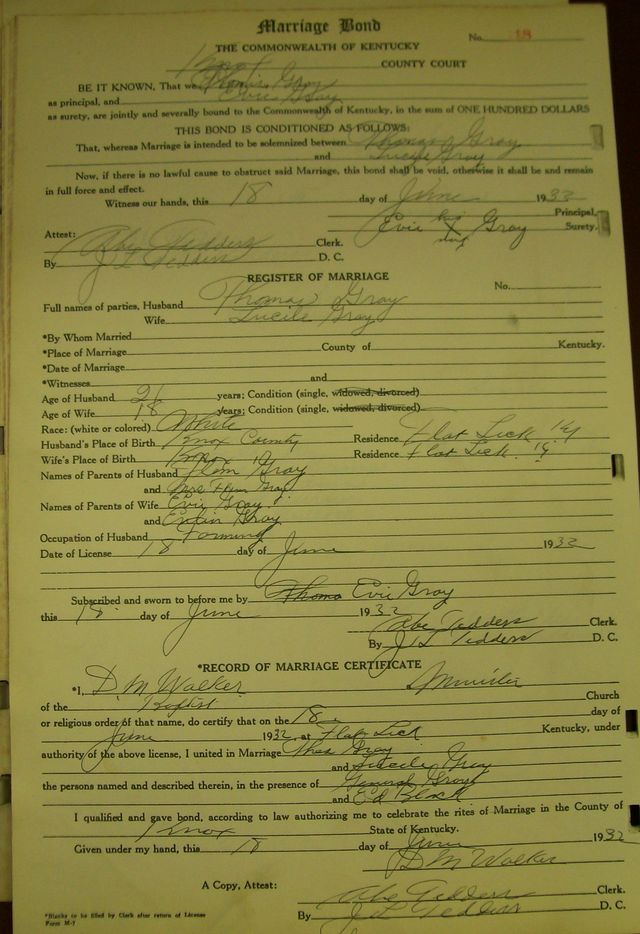 Marriage Bond
No. 18
THE COMMONWEALTH OF KENTUCKY
Knox COUNTY COURT
BE IT KNOWN, That we, Thomas Gray
as principal, and Evie Gray
as surety, are jointly and severally bound to the Commonwealth of Kentucky, in the sum of ONE HUNDRED DOLLARS
THIS BOND IS CONDITIONED AS FOLLOWS:
That, whereas Marriage is intended to be solemnized between Thomas Gray
and Lucile Gray
Now, if there is no lawful cause to obstruct said Marriage, this bond shall be void, otherwise it shall be and remain
in full force and effect.
Witness our hands, this 18 day of June 1932
Principal,
Evie his X Gray Surety.
Attest:
Abe Tedders Clerk.
By J L Tedders D. C.
REGISTER OF MARRIAGE
No.
Full names of parties, Husband Thomas Gray
Wife Lucile Gray
*By Whom Married
*Place of Marriage County of Kentucky.
*Date of Marriage
*Witnesses and
Age of Husband 21 years; Condition (single, widowed, divorced)
Age of Wife 18 years; Condition (single, widowed, divorced)
Race: (white or colored) White
Husband's Place of Birth Knox County Residence Flat Lick Ky
Wife's Place of Birth Knox " Residence Flat Lick Ky
Names of Parents of Husband Flem Gray
and Mrs Flem Gray
Names of Parents of Wife Evie Gray
and Gray
Occupation of Husband Farming
Date of License 18 day of June 1932
Subscribed and sworn to before me by Thomas Evie Gray
this 18 day of June 1932
Abe Tedders Clerk.
By J L Tedders D. C.
*RECORD OF MARRIAGE CERTIFICATE
*I, D. M Walker a minister
of the Baptist Church
or religious order of that name, do certify that on the 18 day of
June 1932 at Flat Lick Kentucky, under
authority of the above license, I united in Marriage Thos Gray
and Lucile Gray
the persons named and described therein, in the presence of Gray
and Ed Black
I qualified and gave bond, according to law authorizing me to celebrate the rites of Marriage in the County of
Knox State of Kentucky.
Given under my hand, this 18 day of June 1932
D M Walker
A Copy, Attest:
Abe Tedders Clerk.
By J L Tedders D. C.
*Blanks to be filled by Clerk after return of License
Form M-7